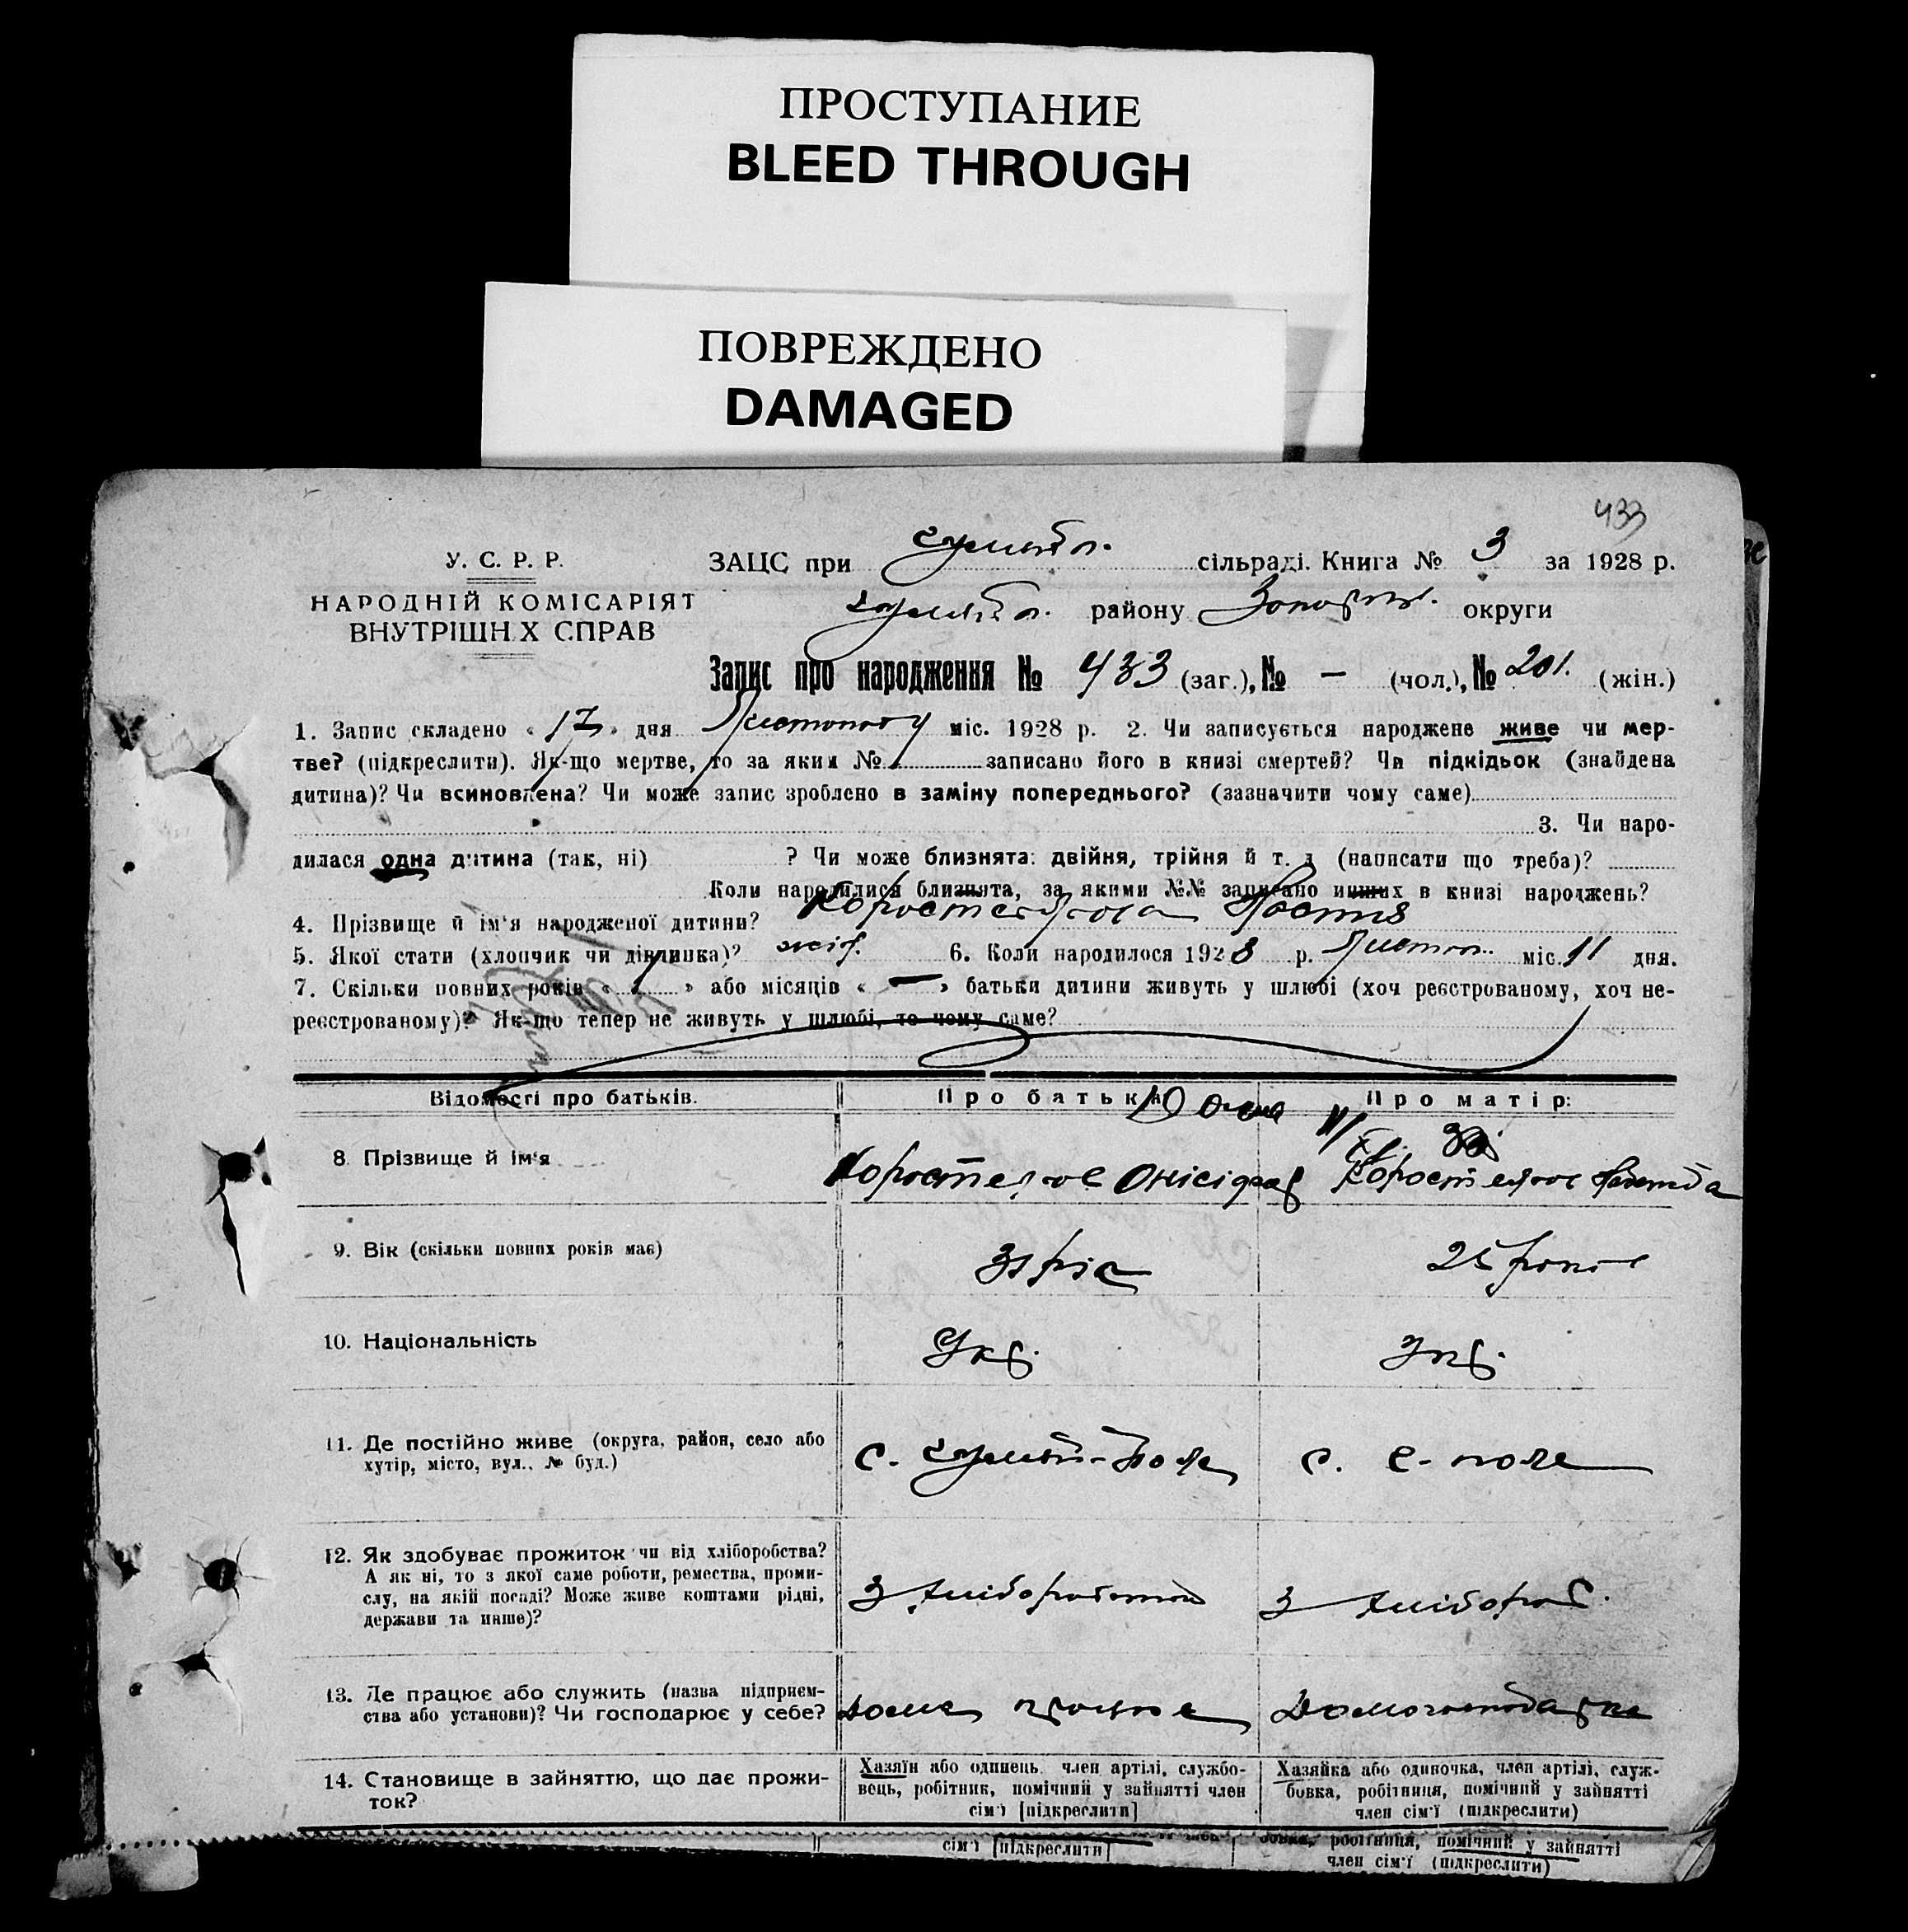 ПРОСТУПАНИЕ
BLEED THROUGH
ПОВРЕЖДЕНО
DAMAGED
433
У. С. Р. Р.
НАРОДНІЙ КОМІСАРІЯТ
ВНУТРІШН Х СПРАВ
ЗАЦС при Гуляйп. сільраді. Книга № 3 за 1928 р.
Гуляйп. району Запоріз. округи
Запис про народження № 433 (заг.), № — (чол.), № 201. (жін.)
1. Запис складено « 17 » дня Листопаду міс. 1928 р. 2. Чи записується народжене живе чи мер-
тве? (підкреслити). Як-що мертве, то за яким № записано його в книзі смертей? Чи підкідьок (знайдена
дитина)? Чи всиновлена? Чи може запис зроблено в заміну попереднього? (зазначити чому саме)
3. Чи наро-
дилася одна дитина (так, ні) ? Чи може близнята: двійня, трійня й т. д (написати що треба)?
Коли народилися близнята, за якими №№ записано инших в книзі народжень?
4. Прізвище й ім'я народженої дитини?
5. Якої стати (хлопчик чи дівчинка)? жін. 6. Коли народилося 1928 р. Листоп. міс. 11 дня.
7. Скільки повних років « 1 » або місяців « — » батьки дитини живуть у шлюбі (хоч реєстрованому, хоч не-
реєстрованому)? Як-що тепер не живуть у шлюбі, то чому саме?
Відомості про батьків.
Про батька
Про матір:
8. Прізвище й ім'я
Коростельов
Коростельов
9. Вік (скільки повних років має)
31 рік
25 років
10. Національність
Укр.
Укр.
11. Де постійно живе (округа, район, село або
хутір, місто, вул., № буд.)
с. Гуляй-Поле
с. Г-поле
12. Як здобуває прожиток чи від хліборобства?
А як ні, то з якої саме роботи, ремества, проми-
слу, на якій посаді? Може живе коштами рідні,
держави та инше)?
З хліборобства
З хлібороб.
13. Де працює або служить (назва підприєм-
ства або установи)? Чи господарює у себе?
дома працює
Домогосподарка
14. Становище в зайняттю, що дає прожи-
ток?
Хазяїн або одинець член артілі, службо-
вець, робітник, помічний у зайнятті член
сім'ї [підкреслити]
Хазяйка або одиночка, член артілі, служ-
бовка, робітниця, помічний у зайнятті
член сім'ї (підкреслити)
сім'ї [підкреслити]
робітниця, помічний у зайнятті
член сім'ї (підкреслити)